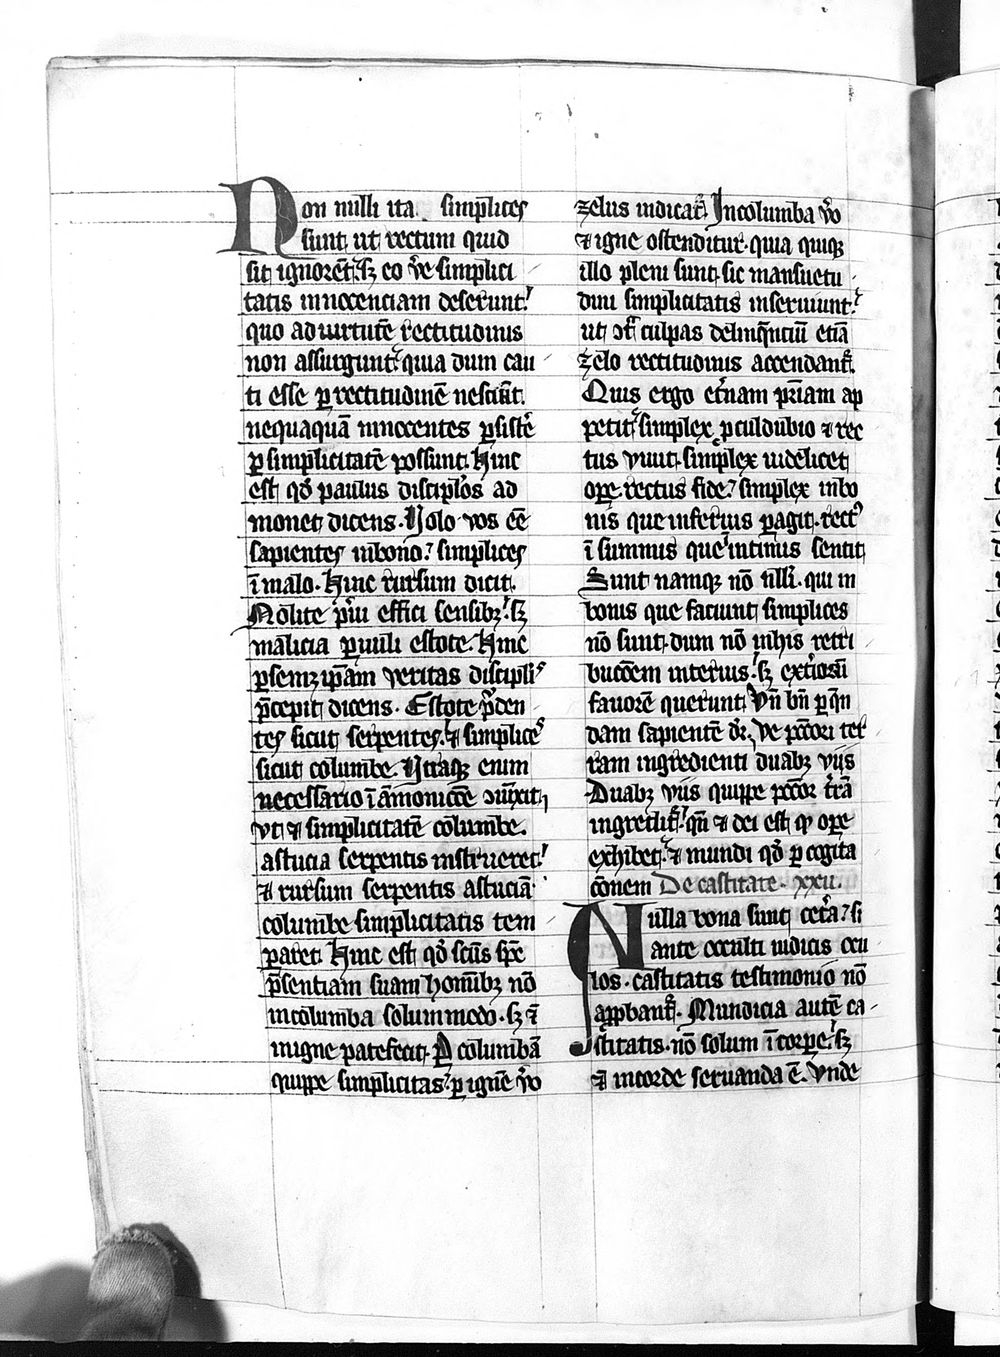 Non nulli ita simplices
sunt ut rectum quid
sit ignorēt. sꝫ eo ve simplici
tatis innocenciam deserunt.
quo ad uirtutē rectitudinis
non assurgunt. quia dum cau
ti esse ꝑ rectitudinē nesciūt.
nequaquā innocentes ꝑsistere
ꝑ simplicitatē possunt. Hinc
est qd̄ paulus discipl̄os ad
monet dicens. Nolo vos eē
sapientes in bono. simplices
ī malo. Hinc rursum dicit.
Nolite pueri effici sensibꝫ. sꝫ
malicia ꝑuuli estote. Hinc
ꝑ semꝫ ip̄am veritas discipl̄is
p̄cepit dicens. Estote p̄den
tes sicut serpentes. ⁊ simplices
sicut columbe. Utraqꝫ enim
necessario ī āmonicōe ꝯiūxit,
vt ⁊ simplicitatē columbe.
astucia serpentis instrueret.
⁊ rursum serpentis astuciā.
columbe simplicitatis tem
paret. Hinc est qd̄ sc̄us sp̄c
p̄sentiam suam hominibꝫ nō
in columba solummodo. sꝫ ⁊
in igne patefecit. Per columbā
quippe simplicitas. ꝑ ignē v̊o
zelus indicat̄. In columba v̊o
⁊ igne ostenditur. quia quiqꝫ
illo pleni sunt. sic mansuetu
dini simplicitatis inseruiunt.
ut ꝯt̄ culpas delinquēciū etiā
zelo rectitudinis accendant̄.
Quis ergo et̄nam pr̄iam ap
petit. simplex ꝓculdubio ⁊ rec
tus viuit. simplex uidelicet
oꝑe. rectus fide. simplex in bo
nis que inferius ꝑagit. rectꝰ
ī summis que intimis sentit
Sunt namqꝫ nō nlli. qui in
bonis que faciunt simplices
nō sunt. dum nō in his retri
bucōem interius. sꝫ ext̄iorem
fauorē querunt. Vn̄ bn̄ ꝑ qn̄
dam sapientē dr̄. Ve pccōri ter
ram ingredienti duabꝫ viis
Duabꝫ viis quippe pccōr t̄rā
ingredit̄. qn̄ ⁊ dei est qd̄ oꝑe
exhibet. ⁊ mundi qd̄ ꝑ cogita
cōnem De castitate. xxii.
Nulla bona sunt cet̄a. si
ante occulti iudicis ocu
los. castitatis testimonio nō
aꝓbant̄. Mundicia autē ca
stitatis. nō solum ī corpe. sꝫ
⁊ in corde seruanda ē. Vnde